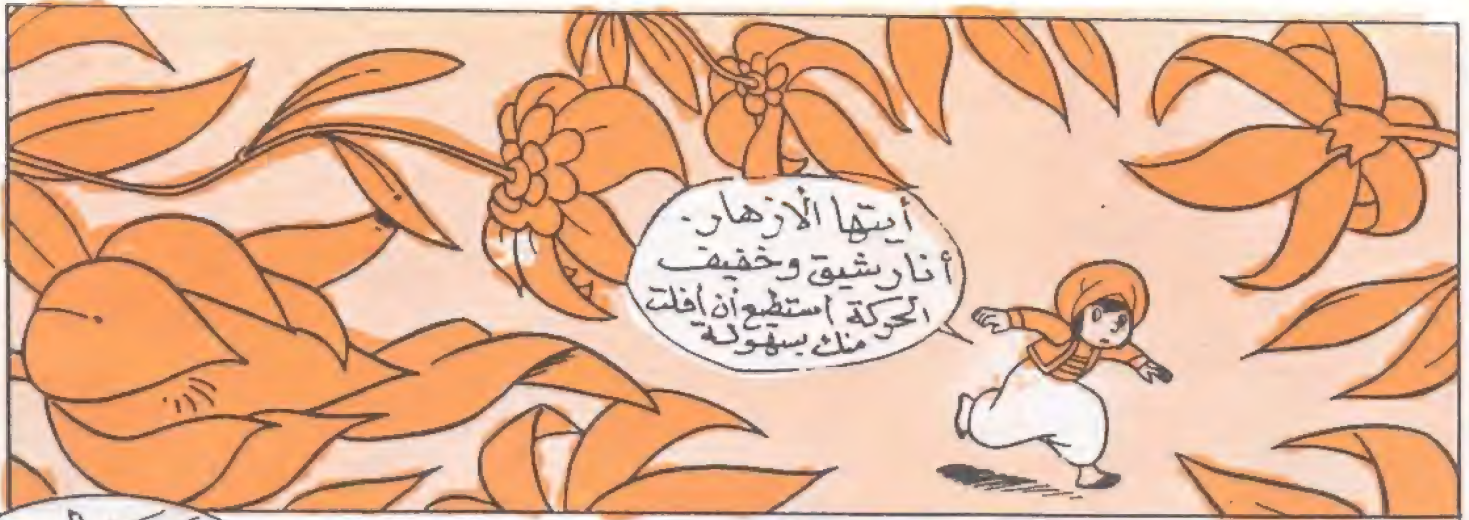 أيتها الازهار.
أنا رشيق وخفيف
الحركة استطيع أن أفلت
منك بسهولة